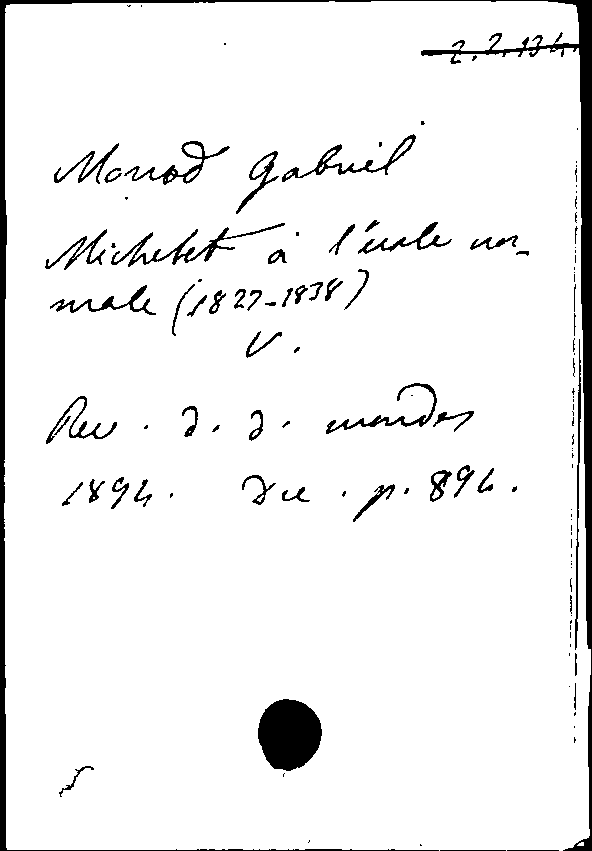 2.2.134.
Monod Gabriel
Michelet à l'école nor-
male (1827-1838)
V.
Rev. d. d. mondes
1894. Dec. p. 894.